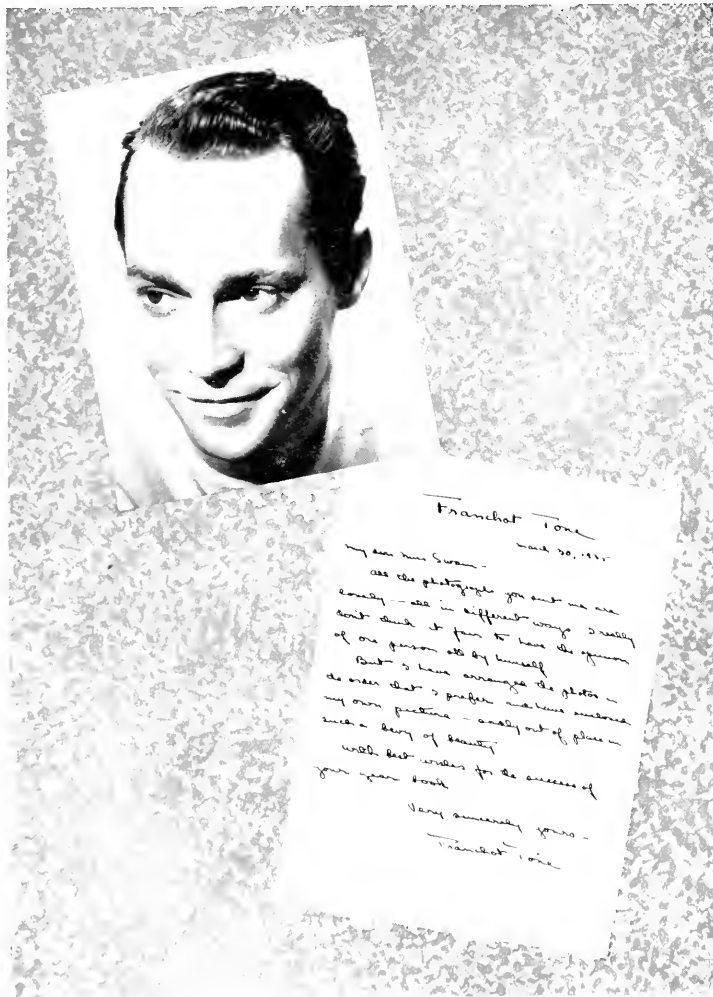 Franchot Tone
March 30, 1935
My dear Miss Swann -
All the photographs you sent me are
lovely - all in different ways. I really
don't think it fair to have the opinion
of one person all by himself.
But I have arranged the photos in
the order that I prefer and have enclosed
my own picture - sadly out of place in
such a bevy of beauty.
With best wishes for the success of
your year book
Very sincerely yours -
Franchot Tone